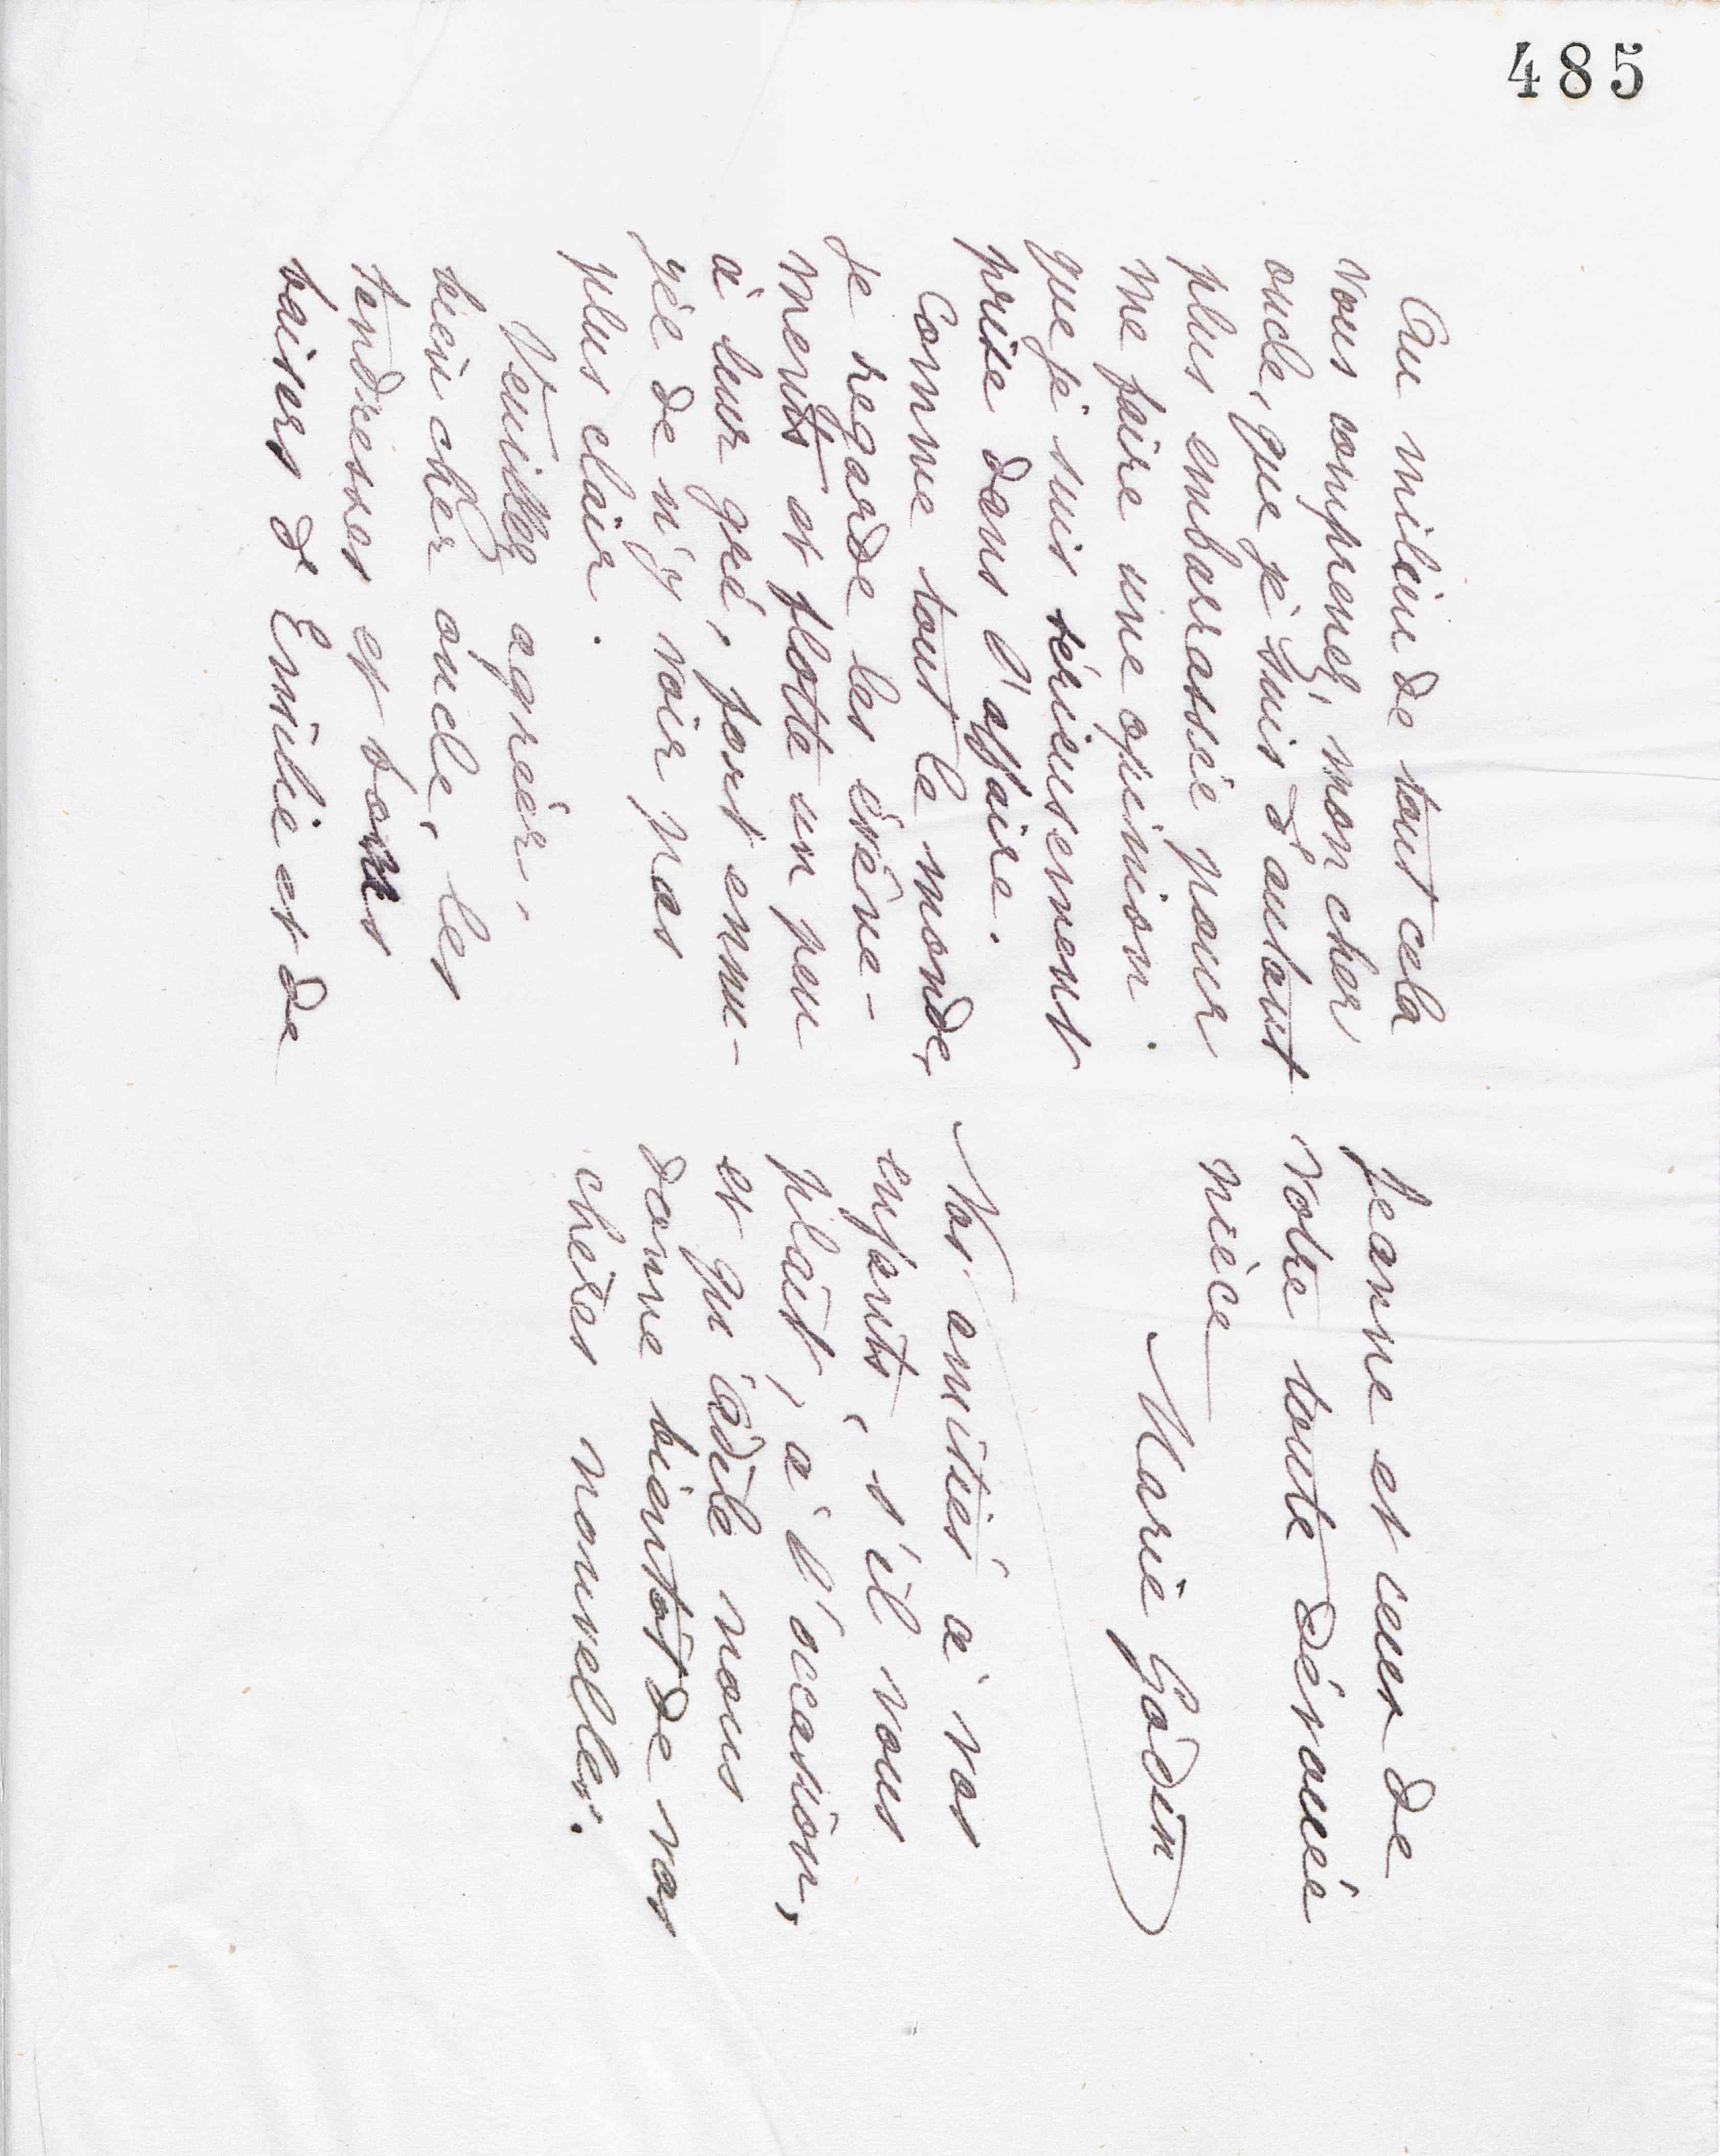 485
Au milieu de tout cela
vous comprenez, mon cher
oncle, que je suis d'autant
plus embarrassée pour
me faire une opinion
que je suis sérieusement
prise dans l'affaire.
Comme tout le monde,
je regarde les évène-
ments et flotte un peu
à leur gré, fort ennu-
yée de n'y voir pas
plus clair.
Veuillez agréer,
bien cher oncle, les
tendresses et bons
baisers d'Emilie et de
Jeanne et ceux de
votre toute dévouée
nièce
Marie Godin
Nos amitiés à vos
enfants, s'il vous
plait, à l'occasion,
et qu'Adèle nous
donne bientôt de vos
chères nouvelles.